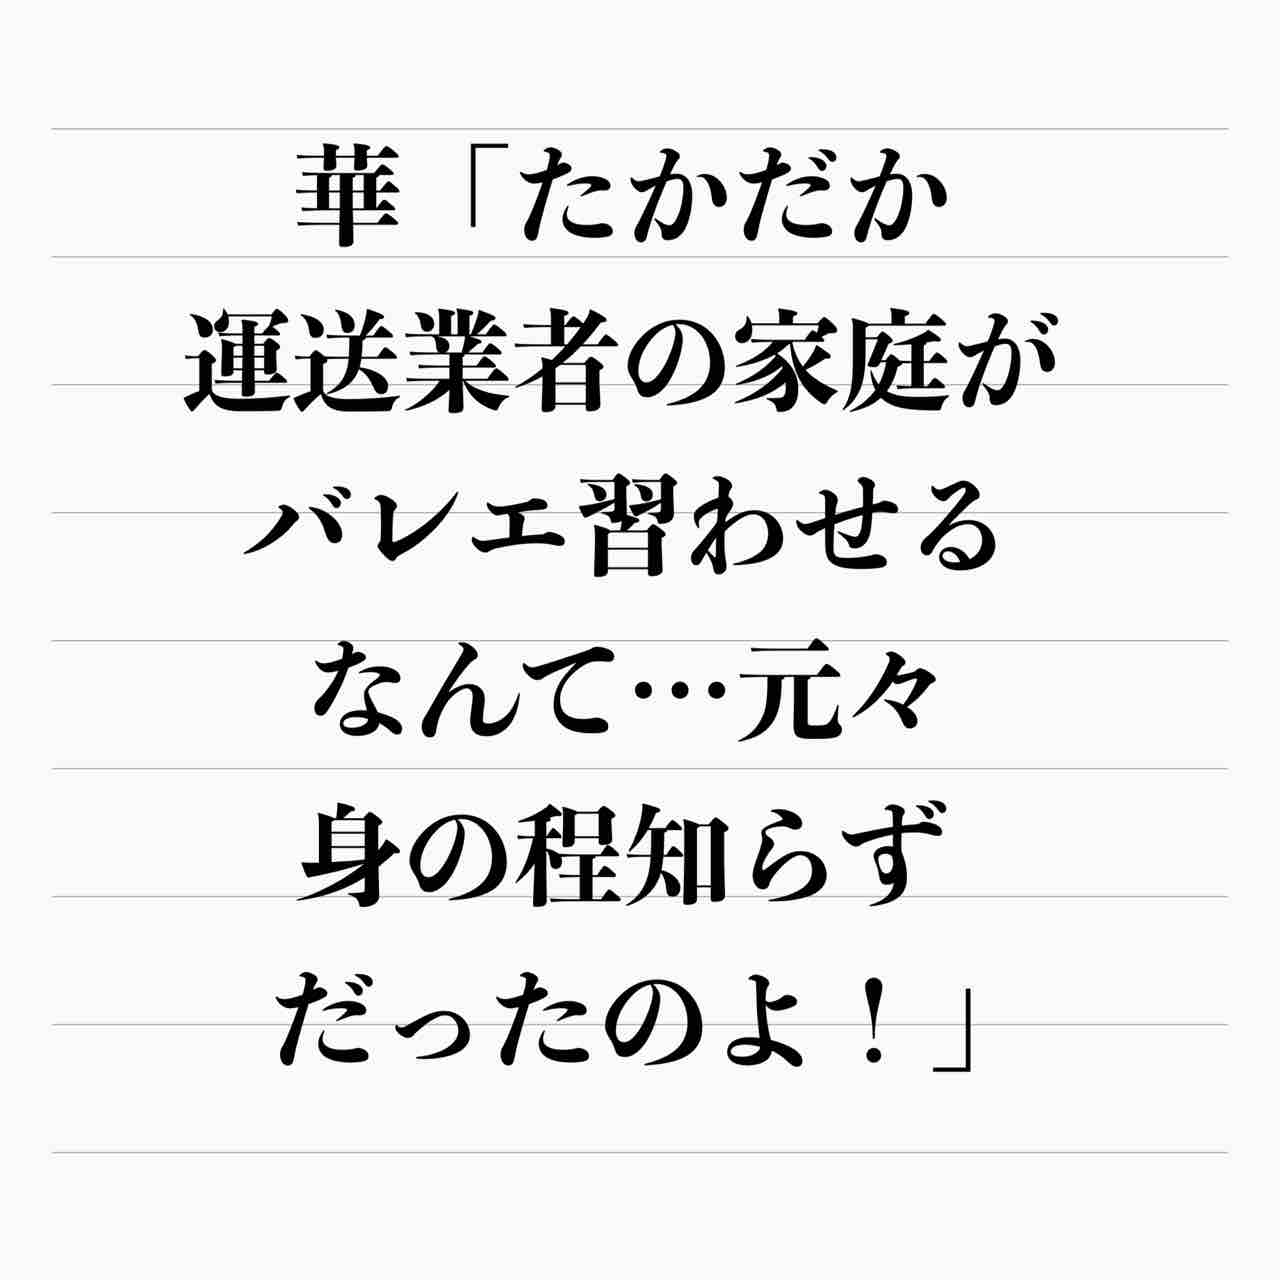 華「たかだか
運送業者の家庭が
バレエ習わせる
なんて…元々
身の程知らず
だったのよ！」